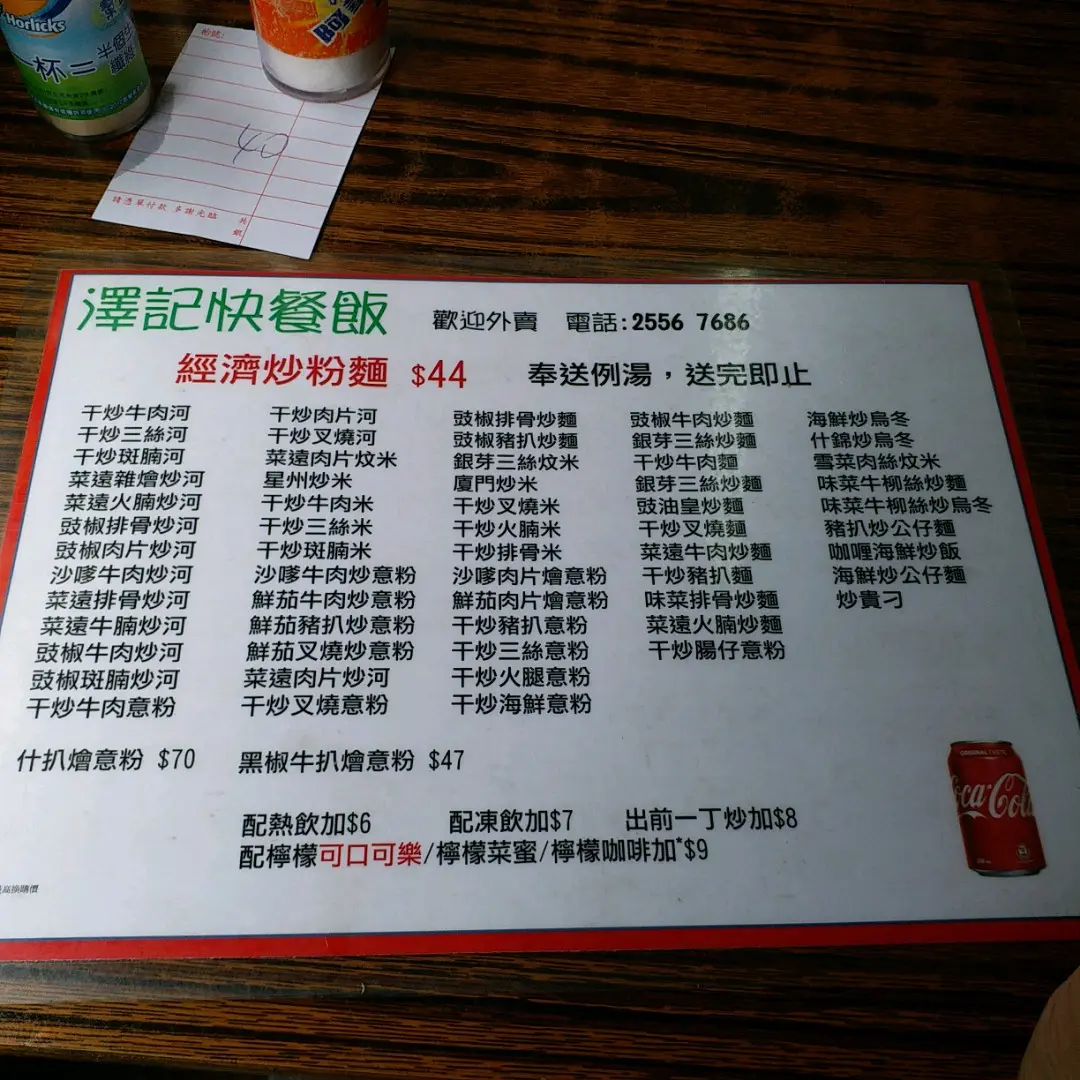 Horlicks
一杯=半個
枱號:
40
請憑單付款 多謝光臨
共銀
澤記快餐飯 歡迎外賣 電話:2556 7686
經濟炒粉麵 $44 奉送例湯，送完即止
干炒牛肉河
干炒三絲河
干炒斑腩河
菜遠雜燴炒河
菜遠火腩炒河
豉椒排骨炒河
豉椒肉片炒河
沙嗲牛肉炒河
菜遠排骨炒河
菜遠牛腩炒河
豉椒牛肉炒河
豉椒斑腩炒河
干炒牛肉意粉
干炒肉片河
干炒叉燒河
菜遠肉片炆米
星州炒米
干炒牛肉米
干炒三絲米
干炒斑腩米
沙嗲牛肉炒意粉
鮮茄牛肉炒意粉
鮮茄豬扒炒意粉
鮮茄叉燒炒意粉
菜遠肉片炒河
干炒叉燒意粉
豉椒排骨炒麵
豉椒豬扒炒麵
銀芽三絲炆米
廈門炒米
干炒叉燒米
干炒火腩米
干炒排骨米
沙嗲肉片燴意粉
鮮茄肉片燴意粉
干炒豬扒意粉
干炒三絲意粉
干炒火腿意粉
干炒海鮮意粉
豉椒牛肉炒麵
銀芽三絲炒麵
干炒牛肉麵
銀芽三絲炒麵
豉油皇炒麵
干炒叉燒麵
菜遠牛肉炒麵
干炒豬扒麵
味菜排骨炒麵
菜遠火腩炒麵
干炒腸仔意粉
海鮮炒烏冬
什錦炒烏冬
雪菜肉絲炆米
味菜牛柳絲炒麵
味菜牛柳絲炒烏冬
豬扒炒公仔麵
咖喱海鮮炒飯
海鮮炒公仔麵
炒貴刁
什扒燴意粉 $70 黑椒牛扒燴意粉 $47
配熱飲加$6 配凍飲加$7 出前一丁炒加$8
配檸檬可口可樂/檸檬菜蜜/檸檬咖啡加*$9
ORIGINAL TASTE
Coca-Cola
高換購價